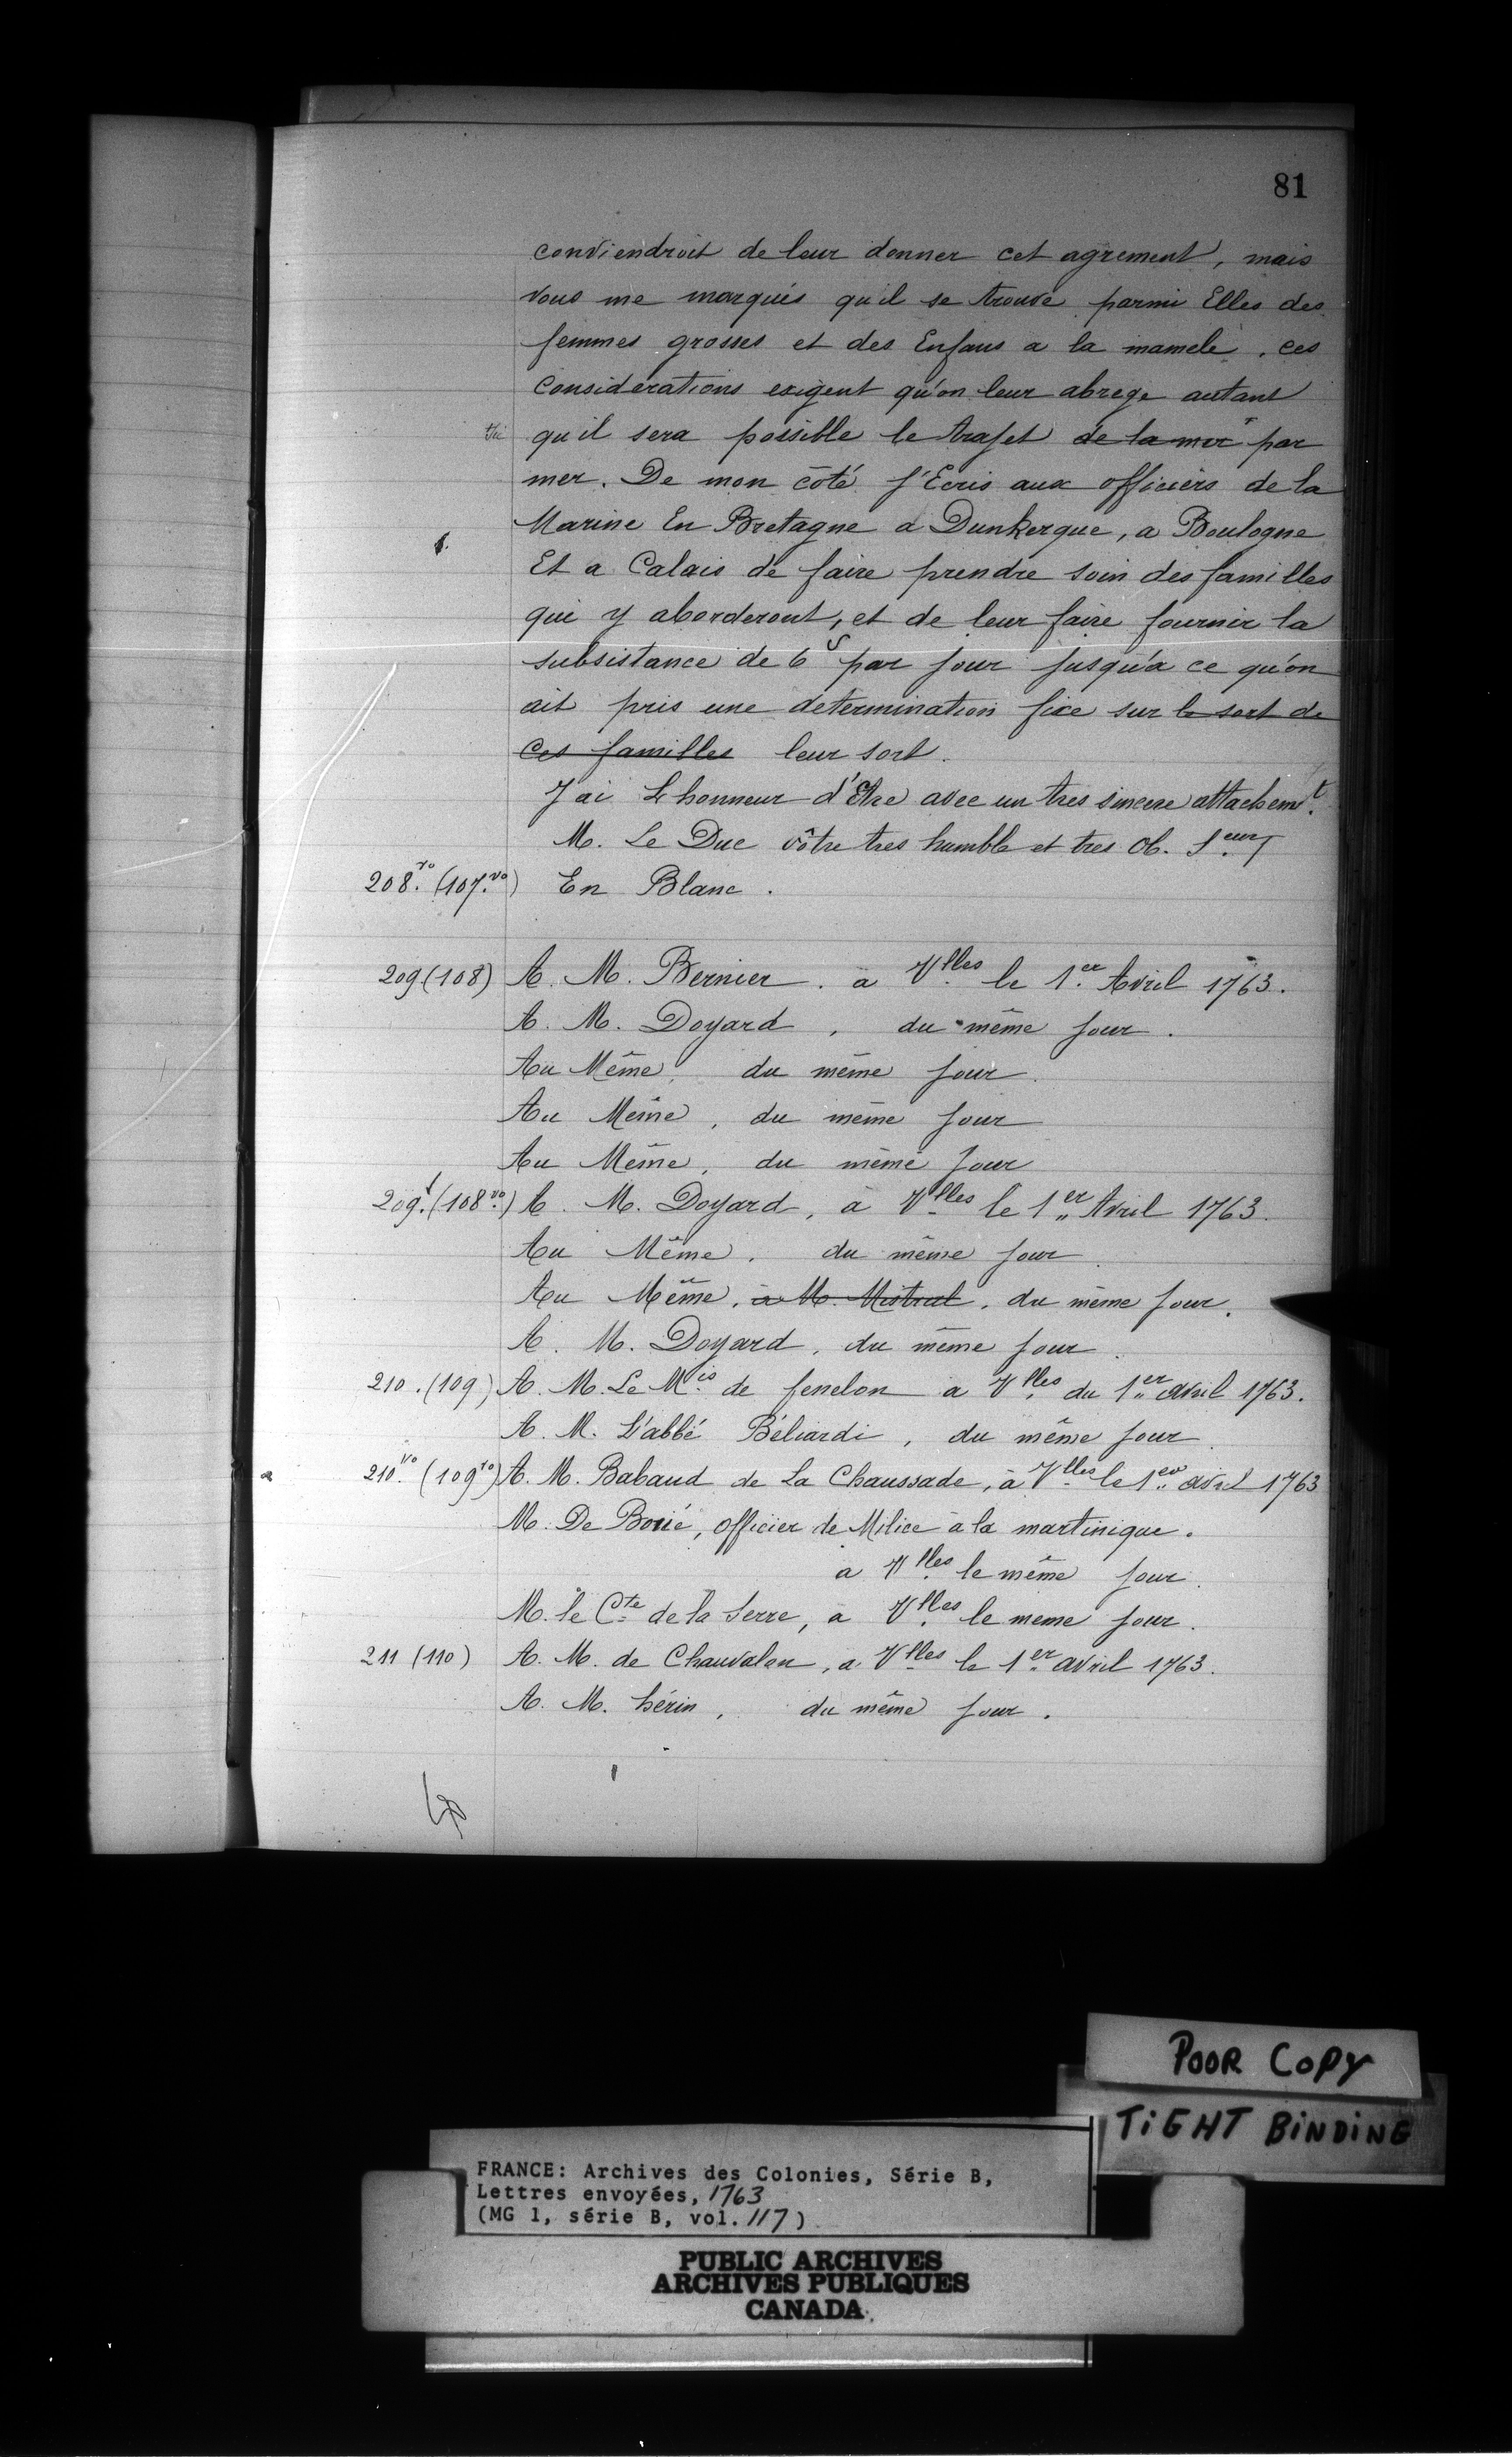 81
conviendroit de leur donner cet agrement, mais
vous me marqués qu'il se trouve parmi Elles des
femmes grosses et des Enfans a la mamele. ces
Considérations exigent qu'on leur abrege autant
qu'il sera possible le trajet de la mer par
mer. De mon côté j'Ecris aux officiers de la
Marine En Bretagne a Dunkerque, a Boulogne
Et a Calais de faire prendre soin des familles
qui y aborderont, et de leur faire fournir la
subsistance de 6 s par jour jusqu'a ce qu'on
ait pris une determination fixe sur le sort de
ces familles leur sort.
J'ai L'honneur d'Etre avec un tres sincere attachemt.
M. Le Duc vôtre tres humble et tres Ob. Seur
208.vo (107.vo) En Blanc.
209 (108) A. M. Bernier. a Vlles le 1.er Avril 1763.
A. M. Doyard, du même jour.
Au Même, du même jour.
Au Même, du même jour
Au Même, du même jour
209.t (108 vo.) A. M. Doyard, à Vlles le 1er Avril 1763.
Au Même, du même jour.
Au Même, à M. Mistral, du même jour.
A. M. Doyard, du même jour.
210. (109) A. M. Le Mis de fenelon a Vlles du 1er avril 1763.
A. M. L'abbé Béliardi, du même jour.
210.vo (109 vo) A. M. Babaud de La Chaussade, à Vlles le 1er avril 1763
M. De Borié, officier de Milice à la martinique.
a Vlles le même jour.
M. le Cte de la Serre, a Vlles le meme jour.
211 (110) A. M. de Chauvalon, a Vlles le 1er avril 1763.
A. M. hérin, du même jour.
POOR COPY
TIGHT BINDING
FRANCE: Archives des Colonies, Série B,
Lettres envoyées, 1763
(MG 1, série B, vol. 117)
PUBLIC ARCHIVES
ARCHIVES PUBLIQUES
CANADA